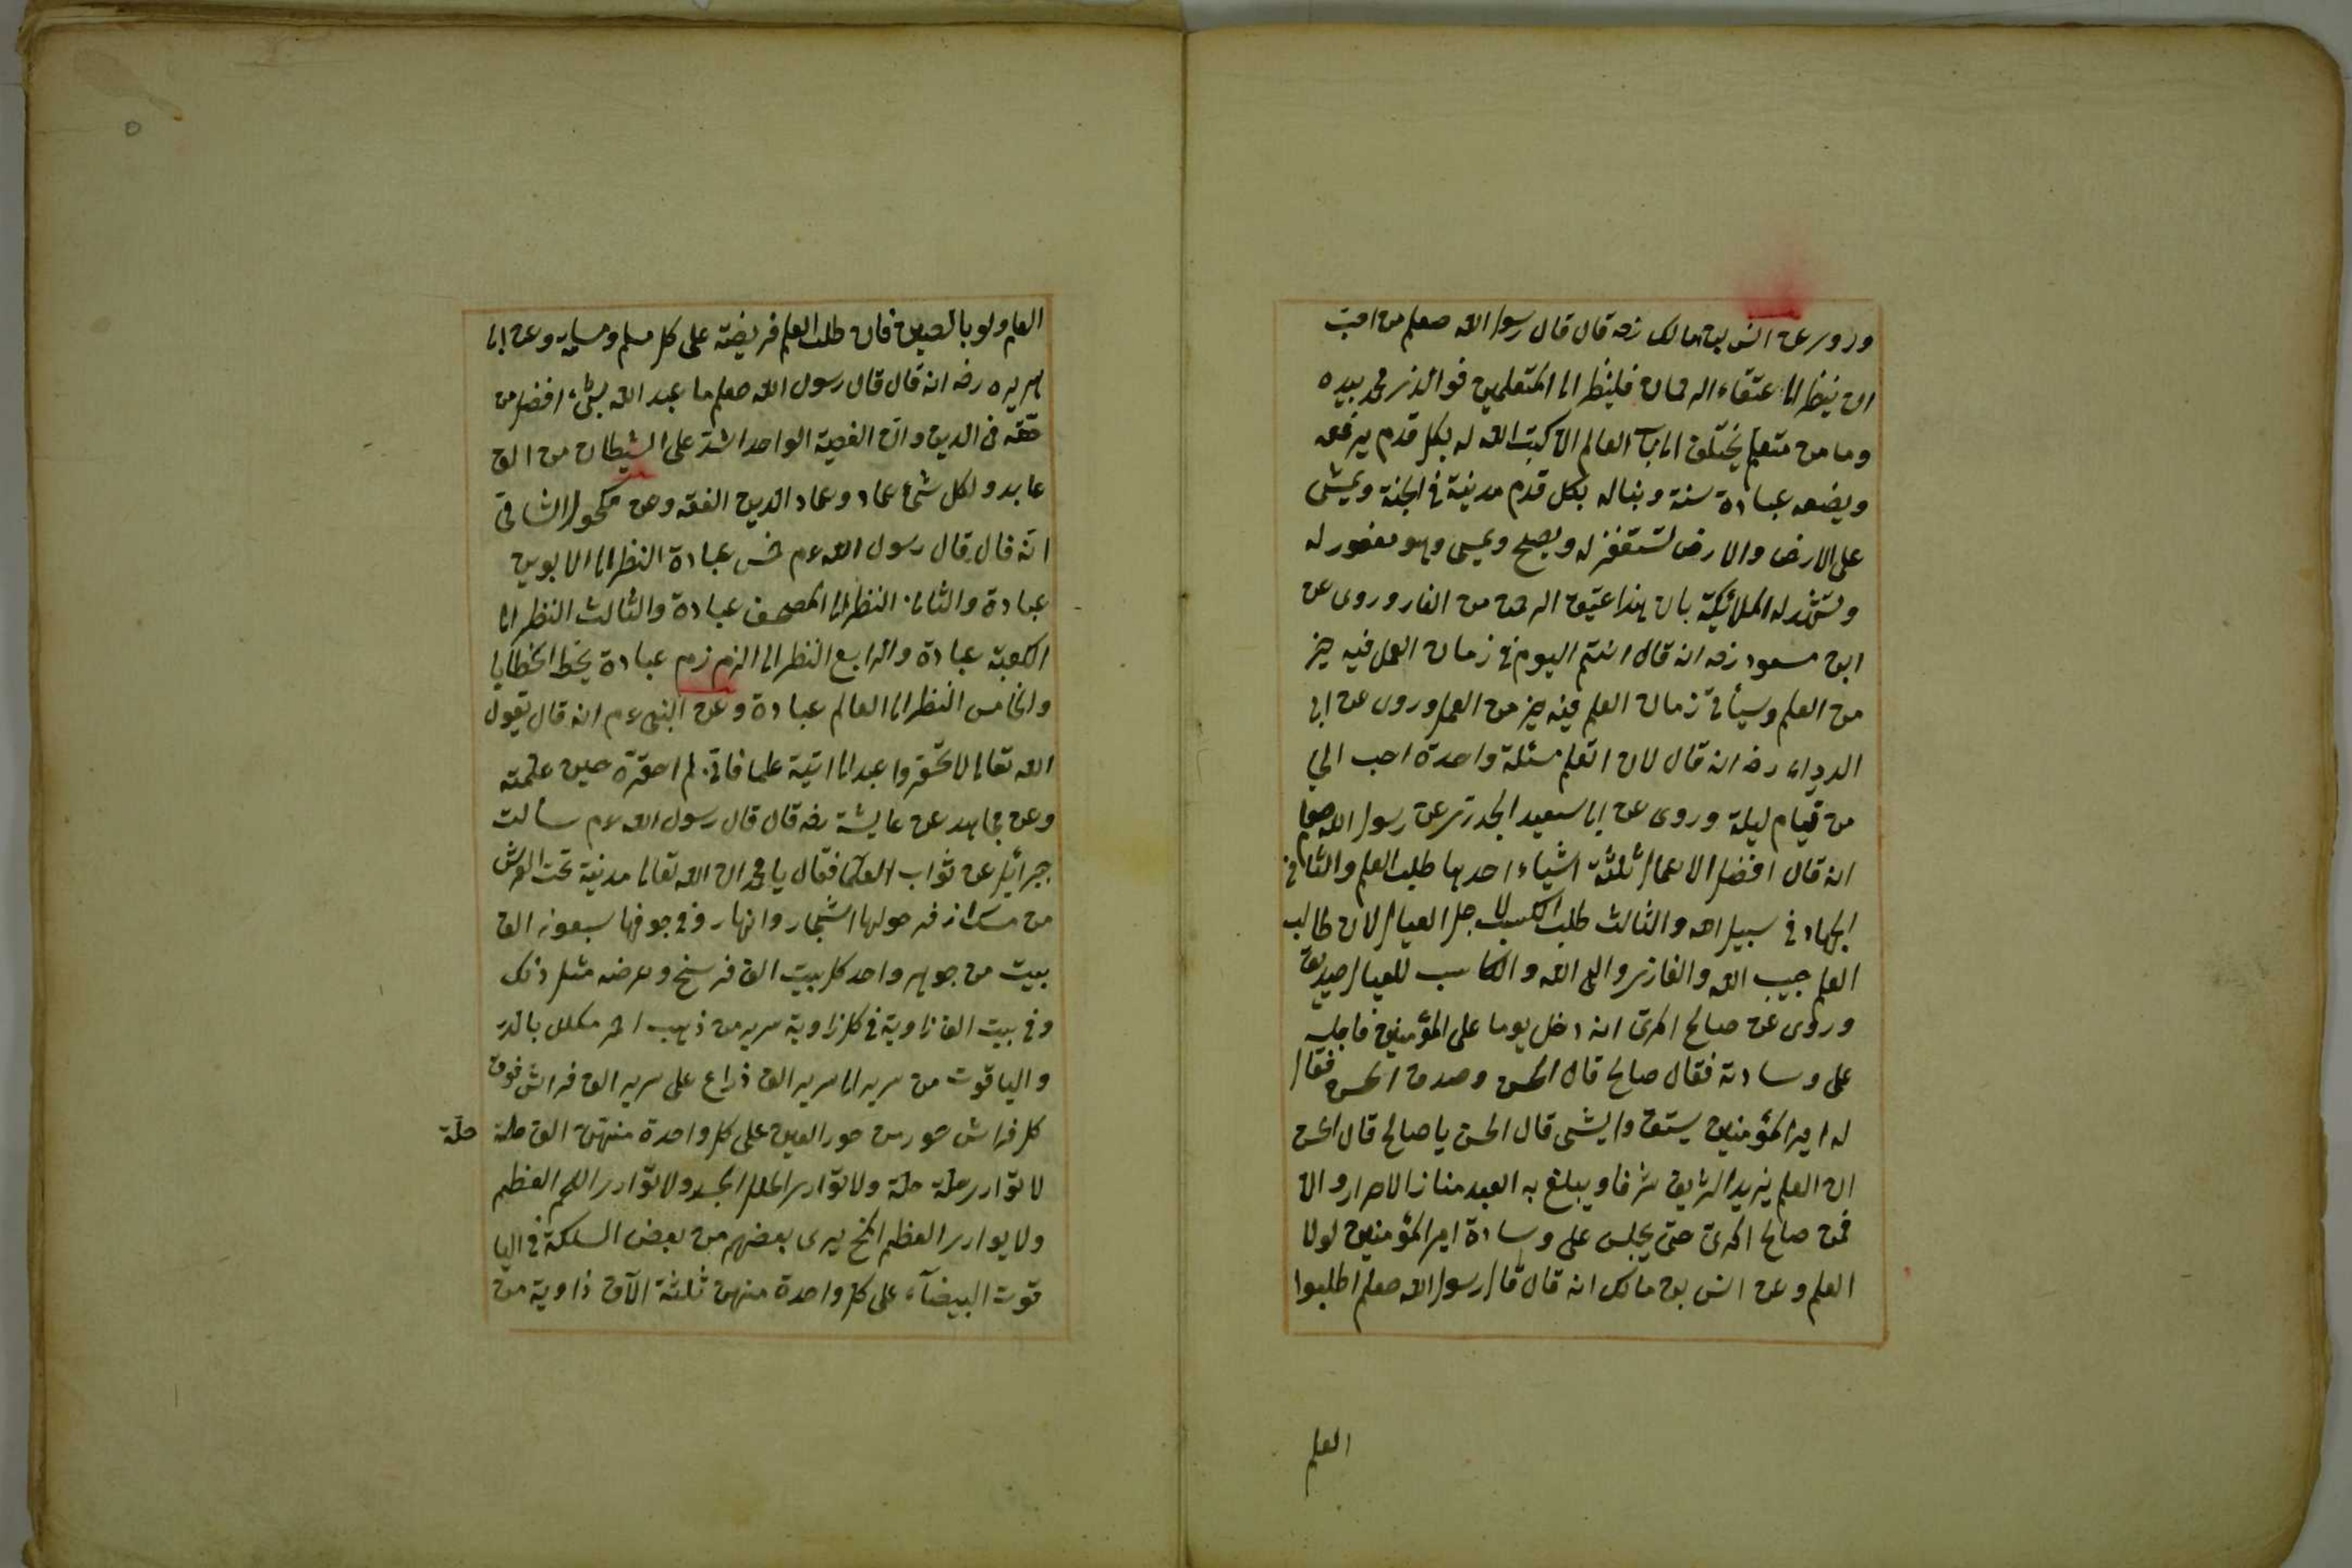 وروى عن انس بن مالك رضه قال قال رسول الله صعلم من احب
ان ينظر الى عتقاء الرحمان فلينظر الى المتعلمين فو الذي محمد بيده
وما من متعلم يختلف الى باب العالم الا كتب الله له بكل قدم يرفعه
ويضعه عبادة سنة وبنا له بكل قدم مدينة فى الجنة ويمشى
على الارض والارض تستغفر له ويصبح ويمسى وهو مغفور له
وتشهد له الملائكة بان هذا عتيق الرحمن من النار وروى عن
ابن مسعود رضه انه قال انتم اليوم فى زمان العمل فيه خير
من العلم وسيأتى زمان العلم فيه خير من العمل وروى عن ابى
الدرداء رضه انه قال لان اتعلم مسئلة واحدة احب الي
من قيام ليلة وروى عن ابى سعيد الخدرى عن رسول الله صعلم
انه قال افضل الاعمال ثلثة اشياء احدها طلب العلم والثانى
الجهاد فى سبيل الله والثالث طلب الكسب لاجل العيال لان طالب
العلم حبيب الله والغازى والى الله والكاسب للعيال صديق
وروى عن صالح المرى انه دخل يوما على المؤمنين فاجلسه
على وسادته فقال صالح قال الحسن وصدق الحسن فقال
له امير المؤمنين وايشى قال الحسن يا صالح قال الحسن
ان العلم يزيد الشريف شرفا ويبلغ به العبد منازل الاحرار والا
فمن صالح المرى حتى يجلس على وسادة امير المؤمنين لولا
العلم وعن انس بن مالك انه قال قال رسول الله صعلم اطلبوا
العلم
العلم ولو بالصين فان طلب العلم فريضة على كل مسلم ومسلمة وعن ابى
هريره رضه انه قال قال رسول الله صعلم ما عبد الله بشىء افضل من
فقه فى الدين وان الفقيه الواحد اشد على الشيطان من الف
عابد ولكل شىء عماد وعماد الدين الفقه وعن مكحول الشامى
انه قال قال رسول الله ءم خمس عبادة النظر الى الابوين
عبادة والثانى النظر الى المصحف عبادة والثالث النظر الى
الكعبة عبادة والرابع النظر الى الزم زم عبادة يحط الخطايا
والخامس النظر الى العالم عبادة وعن النبى ءم انه قال يقول
الله تعالى لا تحقروا عبدا اتيته علما فانى لم احقره حين علمته
وعن مجاهد عن عايشة رضه قال قال رسول الله ءم سألت
جبرائيل عن ثواب العلماء فقال يا محمد ان الله تعالى مدينة تحت العرش
من مسك ازفر حولها اشجار وانهار وفى جوفها سبعون الف
بيت من جوهر واحد كل بيت الف فرسخ وعرضه مثل ذلك
وفى بيت الف زاوية فى كل زاوية سرير من ذهب احمر مكلل بالدر
والياقوت من سرير الى سرير الف ذراع على سرير الف فراش فوق
كل فراش حور من حور العين على كل واحدة منهن الف حلة
حلة
لا توارى حلة حلة ولا توارى الحلل الجسد ولا توارى اللحم العظم
ولا يوارى العظم المخ يرى بعضهم من بعض السلكة فى اليا
قوت البيضآء على كل واحدة منهن ثلثة الآف ذاوية من